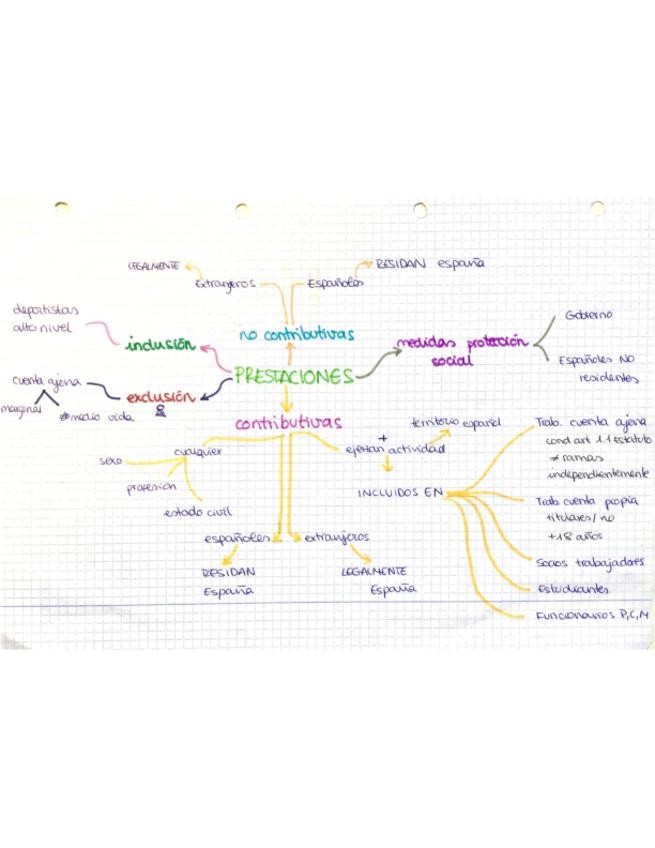 LEGALMENTE
Extranjeros
Españoles
RESIDAN españa
deportistas
alto nivel
inclusión
no contributivas
medidas protección
social
Gobierno
Españoles NO
residentes
cuenta ajena
marginal
≠ medio vida
exclusión
PRESTACIONES
contributivas
cualquier
sexo
profesión
estado civil
+
ejerzan actividad
territorio español
INCLUIDOS EN
Trab. cuenta ajena
cond art 1.1 estatuto
≠ ramas
independientemente
Trab cuenta propia
titulares / no
+18 años
Socios trabajadores
Estudiantes
Funcionarios P,C,M
españoles
extranjeros
RESIDAN
España
LEGALMENTE
España